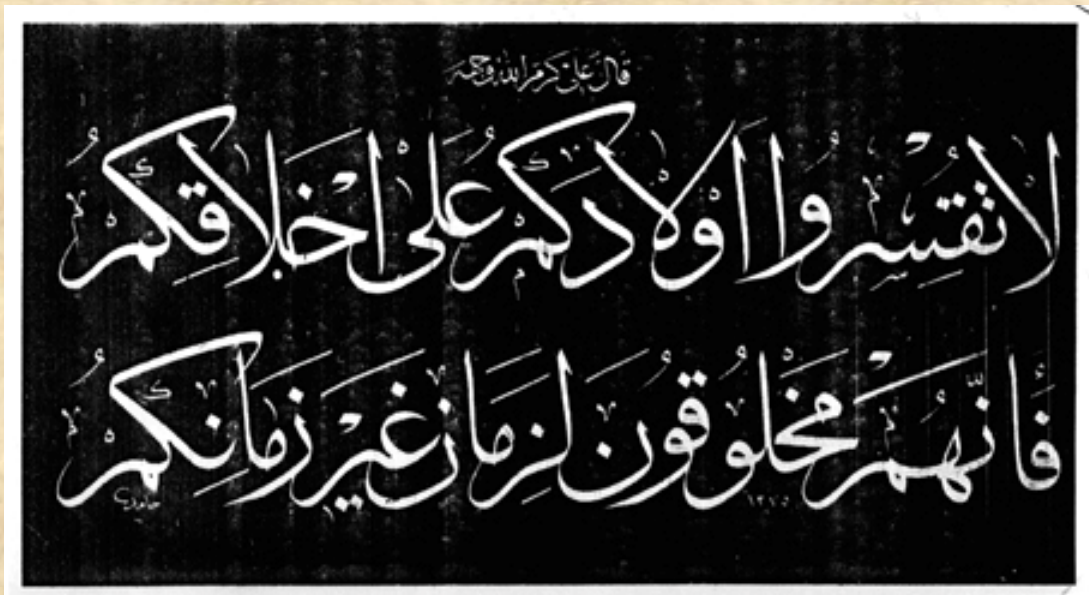 قال علي كرم الله وجهه
لا تقسروا اولادكم على اخلاقكم
فانهم مخلوقون لزمان غير زمانكم